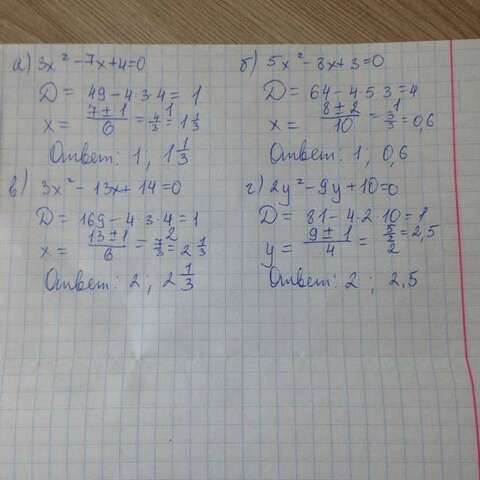 а) 3x² - 7x + 4 = 0
D = 49 - 4·3·4 = 1
x = (7 ± 1)/6 = 1; 4/3 = 1 1/3
Ответ: 1, 1 1/3
б) 5x² - 8x + 3 = 0
D = 64 - 4·5·3 = 4
x = (8 ± 2)/10 = 1; 3/5 = 0,6
Ответ: 1, 0,6
в) 3x² - 13x + 14 = 0
D = 169 - 4·3·4 = 1
x = (13 ± 1)/6 = 2; 7/3 = 2 1/3
Ответ: 2; 2 1/3
г) 2y² - 9y + 10 = 0
D = 81 - 4·2·10 = 1
y = (9 ± 1)/4 = 5/2 = 2,5; 2
Ответ: 2; 2.5